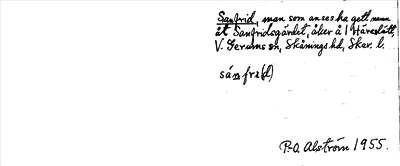 Sanfrid, man som anses ha gett namn
åt Sanfridsgärdet, åker å 1 Häreslätt,
V. Gerums sn, Skånings hd, Skar. l.
sánfri(d)
P.-O. Alström 1955.